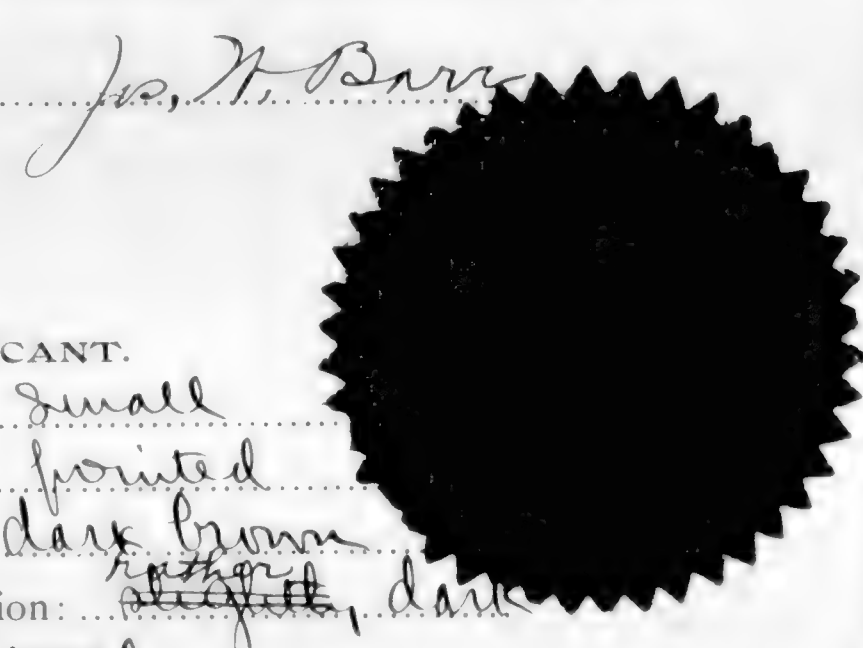 Jos. W. Barr
CANT.
Small
pointed
dark brown
rather
ion: slightly, dark